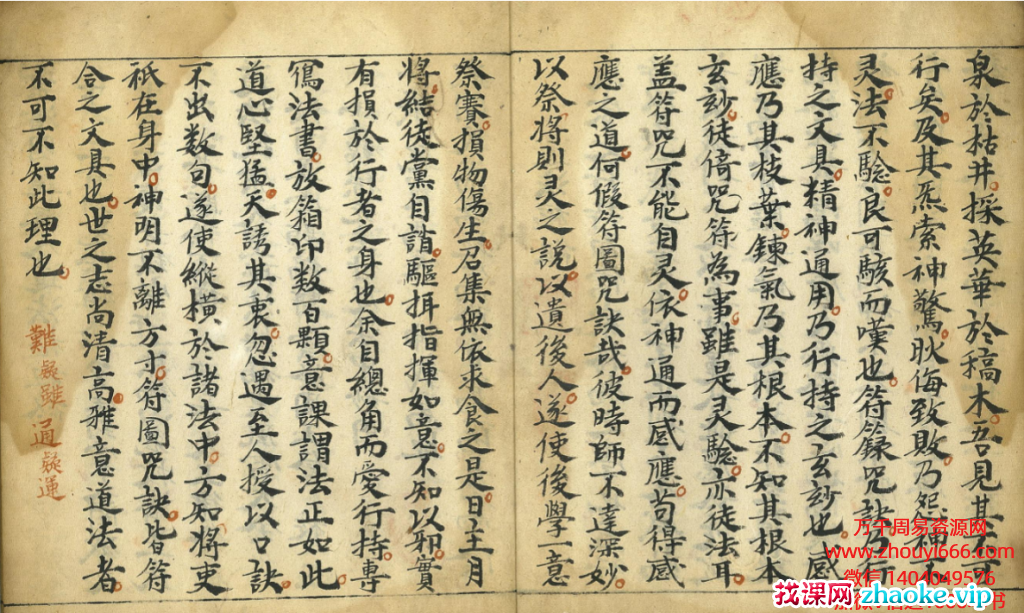 泉於枯井。探英華於稿木。吾見其不可
行矣。及其炁索神驚。耿侮致敗。乃怨神不
灵。法不驗。良可駭而嘆也。符籙咒訣。乃行
持之文具。精神通用。乃行持之玄玅也。感
應乃其枝葉。鍊氣乃其根本。不知其根本
玄玅。徒倚咒符為事。雖是灵驗。亦徒法耳。
盖符咒不能自灵。依神通而感應。苟得感
應之道。何假符圖咒訣哉。彼時師不達深妙。
以祭將則灵之説。以遺後人。遂使後學一意
祭賽。損物傷生。召集無依求食之是。日主月
將。結徒黨。自諧驅揖指揮如意。不知以邪。實
有損於行者之身也。余自總角而愛行持。專
寫法書。放箱印数百顆。意課謂法正如此。
道心堅猛。天誘其衷。忽遇至人。授以口訣。
不出数句。遂使縱橫於諸法中。方知將吏
祇在身中。神明不離方寸。符圖咒訣。皆符
合之文具也。世之志尚清高。雅意道法者。
不可不知此理也。
難疑雖通疑運
万千周易资源网
www.zhouyi666.com
微信1404049576
找课网zhaoke.vip